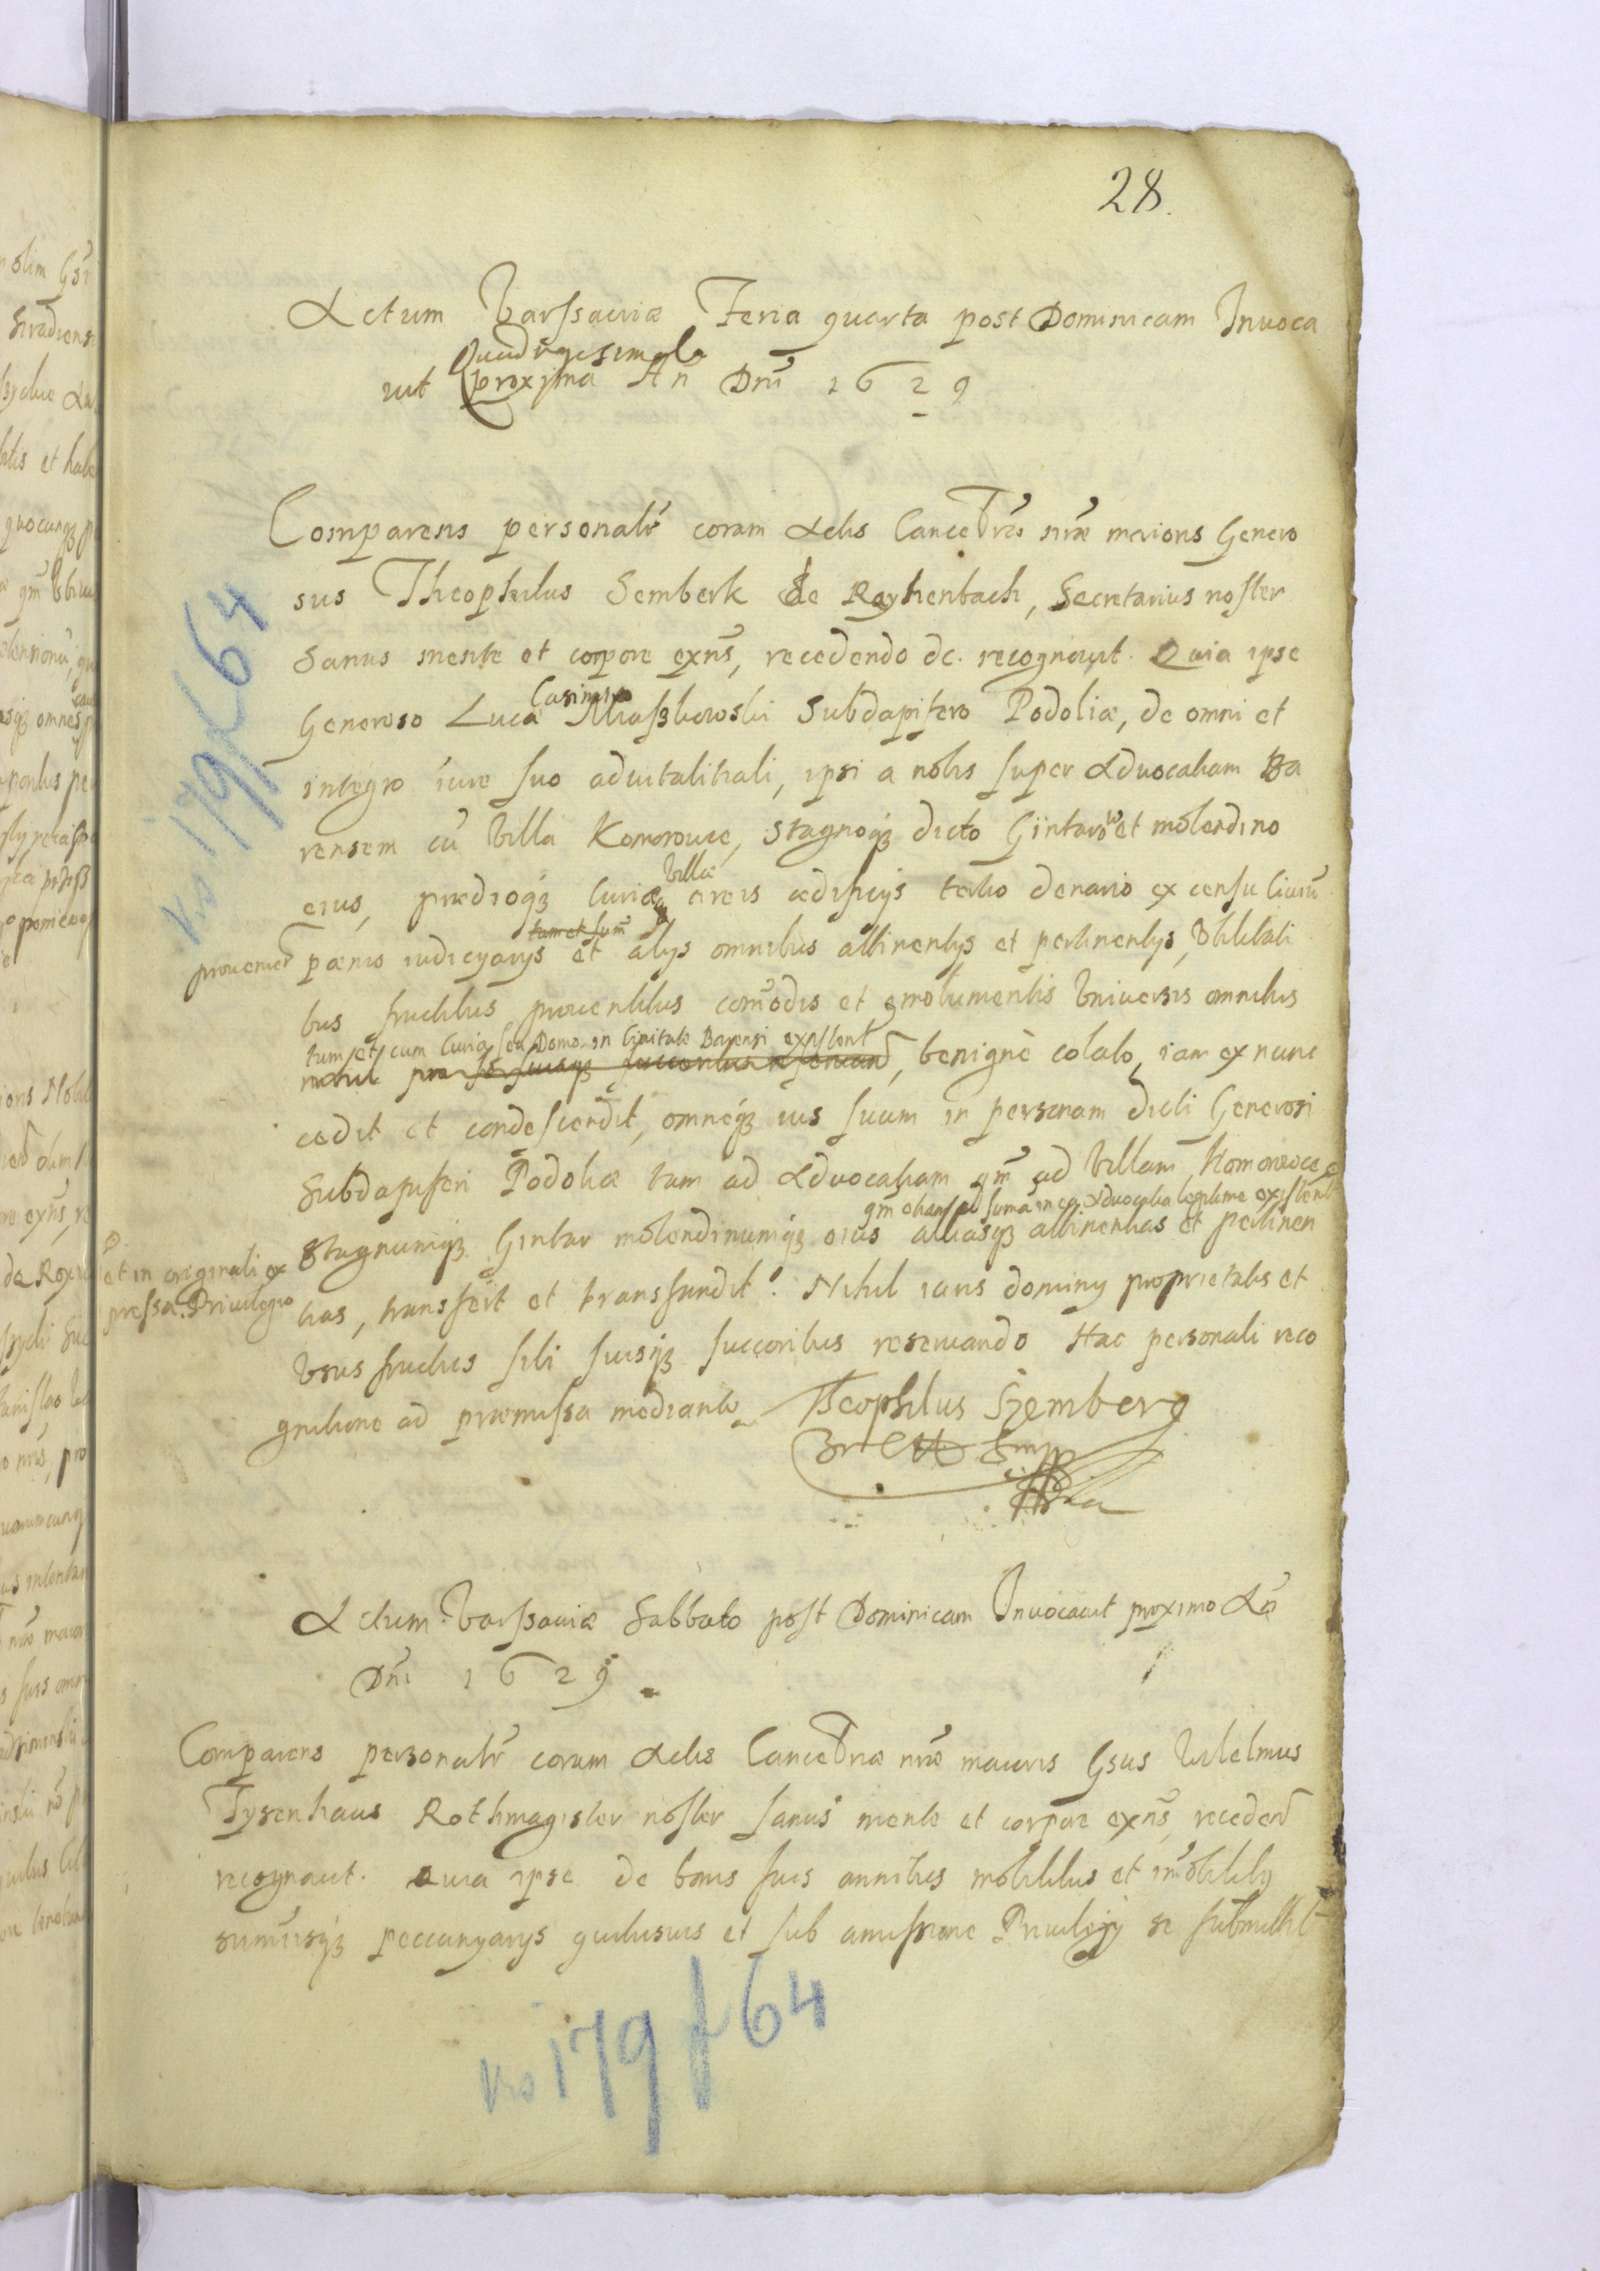 28.
Actum Varsaviæ Feria quarta post Dominicam Invoca
Quadragesimale
vit proxima An Dni 1629
Comparens personalr coram Actis Cancellrae nrae maioris Genero
sus Theophilus Semberk de Rayhenbach, Secretarius noster
Sanus mente et corpore exns, recedendo dc. recognovit. Quia ipse
Casimiro
Generoso Luca Miaszkowski Subdapifero Podoliæ, de omni et
integro iure suo advitalitali, ipsi a nobis super Advocatiam Ba
rensem cu Villa Komorowce, Stagnoq3 dicto Gintarowo et molendino
Villæ
eius, prædioq3 Curiæ areis ædificijs tertio denario ex censu Civiu
tum et sum
provenien pœnis iudicyarys et alys omnibus attinentys et pertinentys, Vtilitati
bus fructibus proventibus comodis et emolumentis Vniversis omnibus
tum et cum Curia seu Domo in Civitate Barensi existent
nihil pro se suisq3 succoribus reservand, benignè colato, iam ex nunc
cedit et condescendit, omneq3 ius suum in personam dicti Generosi
Subdapiferi Podoliæ tam ad Advocatiam qm ad Villam Komorowce
qm etiam ad suma in ea Advocatia legitime existent
Stagnumq3 Gintar molendinumq3 eius aliasq3 attinentias et pertinen
et in originali ex
pressa Privilegio
tias, transfert et transfundit. Nihil iuris dominy proprietatis et
Vsus fructus sibi suisq3 succoribus reservando Hac personali reco
gnitione ad præmissa mediante Theophilus Szemberg
Actum Varsaviæ Sabbato post Dominicam Invocavit proximo An
Dni 1629
Comparens personalr coram Actis Cancellriæ nræ maioris Gsus Wilelmus
Tysenhaus Rothmagister noster sanus mente et corpore exns, receden
recognovit. Quia ipse de bonis suis omnibus mobilibus et imobiliby
sumisq3 peccunyarys quibusvis et sub amissione Privilegy se submittit
No 179 f 64
No 179 f 64